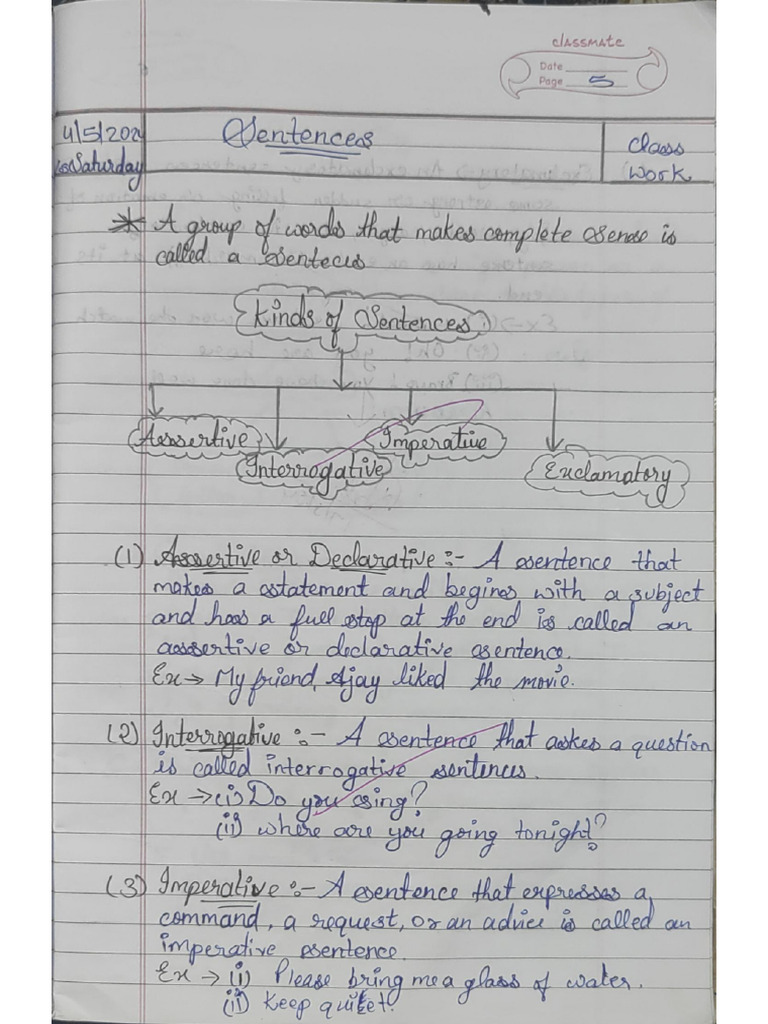 classmate
Date
Page 5
4/5/202
Saturday
Sentences
Class
Work
* A group of words that makes complete sense is
called a sentecus
Kinds of Sentences.
Assertive
Imperative
Interrogative
Exclamatory
(1) Assertive or Declarative :- A sentence that
makes a statement and begines with a subject
and has a full stop at the end is called an
assertive or declarative sentence.
Ex → My friend, Ajay liked the movie.
(2) Interrogative :- A sentence that askes a question
is called interrogative sentences.
Ex → (i) Do you sing?
(ii) where are you going tonight?
(3) Imperative :- A sentence that expresses a
command, a request, or an advice is called an
imperative sentence.
Ex → (i) Please bring me a glass of water.
(ii) Keep quiet!